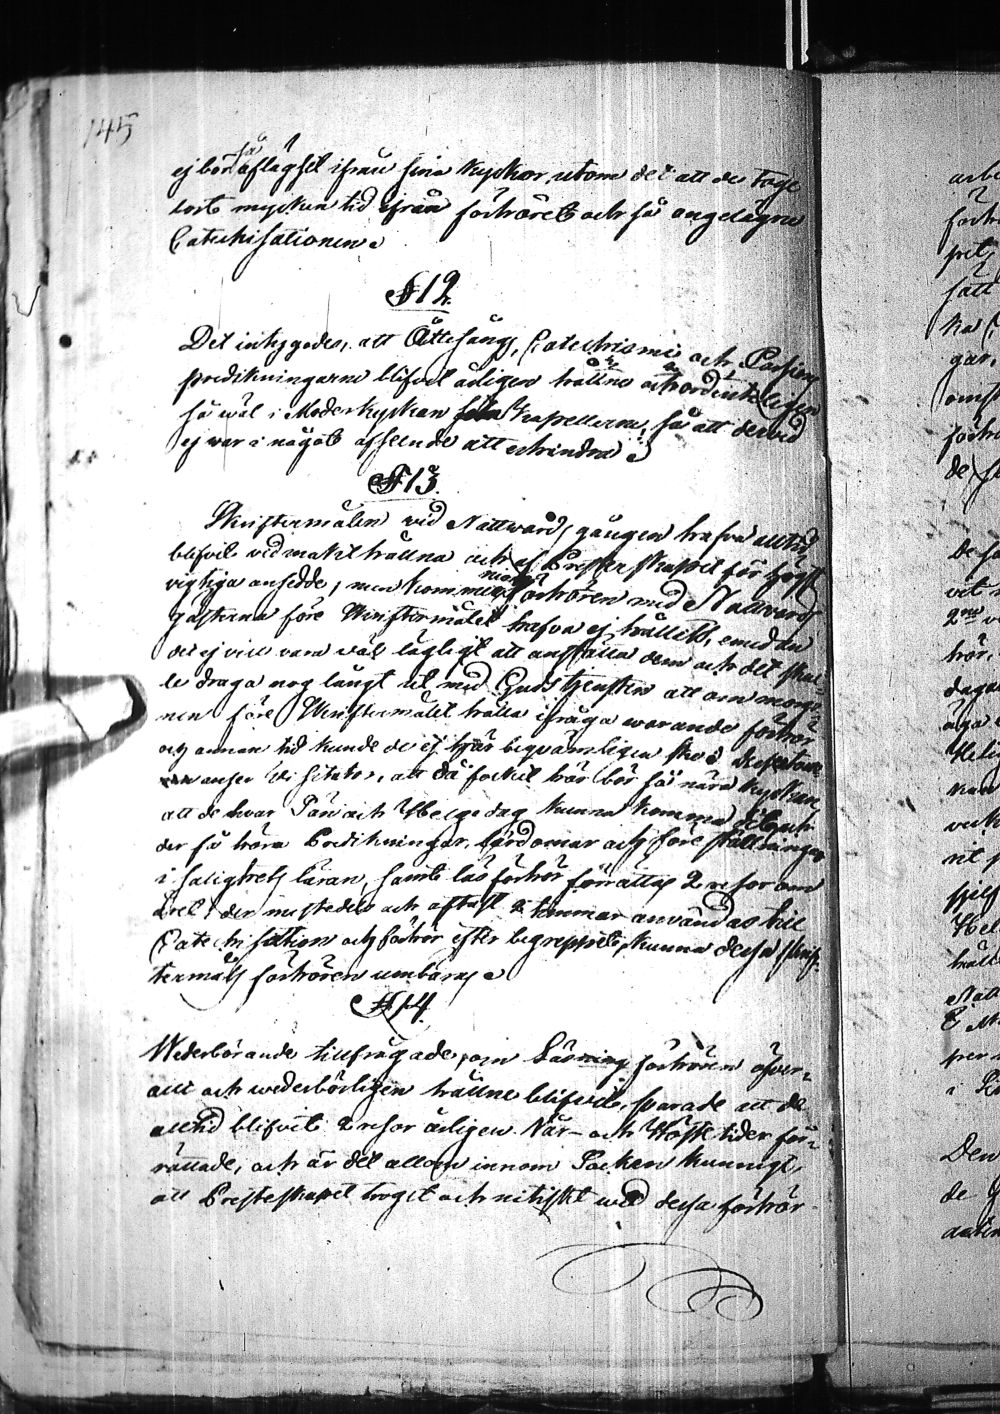 145
ej bör så aflägset ifrån sina Kyrkor, utom det att de tage
bort mycken tid ifrån förhöret och så angelägne
Catechisationen.
§ 12.
Det intygades, att Ottesångs, Catechismi och Passions
predikningarne blifvit årligen hållne och ordenteligen
så wäl i Moderkyrkan som Kapellerne, så att dervid
ej war i något afseende att erhindra.
§ 13.
Skriftermålen vid Nattwards gången hafva alltid
blifvit vid makt hållna och af Presterskapet för högst
vigtiga ansedde, men Communions förhören med Nattvards
gästerna före Skriftermålet hafva ej hållits, emedan
det ej vill vara wäl lägligt att anställa dem och det skul-
le draga nog långt ut med Gudstjensten att om morgo-
nen före Skriftermålet hålla ifråga warande förhör
og annan tid kunde de ej här beqvämligen ske.
anser Visitator, att då folket här bor så nära kyrkan,
att de hvar Sön och Helgedag kunna komma dit och
der få höra Predikningar, lärdomar och föreställningar
i salighets läran, samt läsförhör förrättas 2 resor om
året, der mestedels och oftast 2 timmar användas till
Catechisation och förhör efter begreppet, kunna dessa skrif-
termåls förhören umbäras.
§ 14.
Wederbörande tillfrågade, om Läsning förhören öfver-
allt och wederbörligen hållne blifvit, svarade att de
alltid blifvit 2 resor årligen Vår- och Höste tider för-
rättade, och är det allom innom Socken kunnigt,
att Presteskapet troget och nitiskt wid dessa förhör